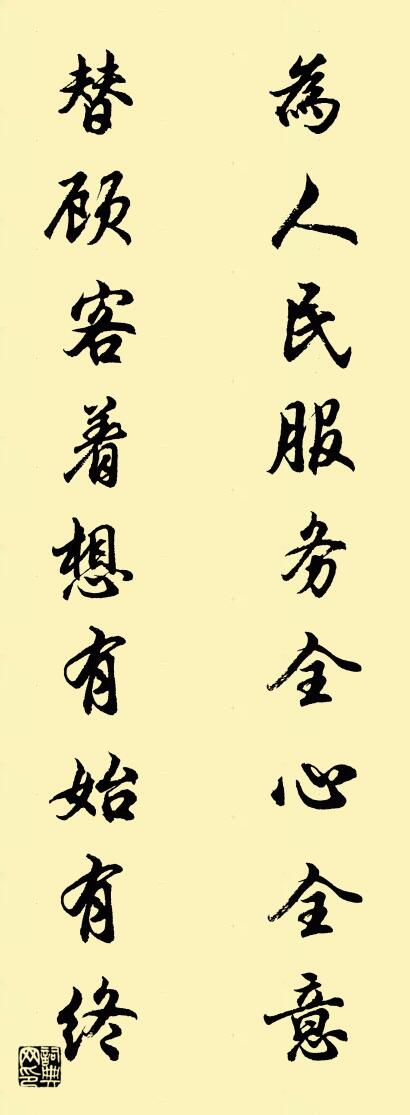 為人民服务全心全意
替顾客着想有始有终
詞典网印